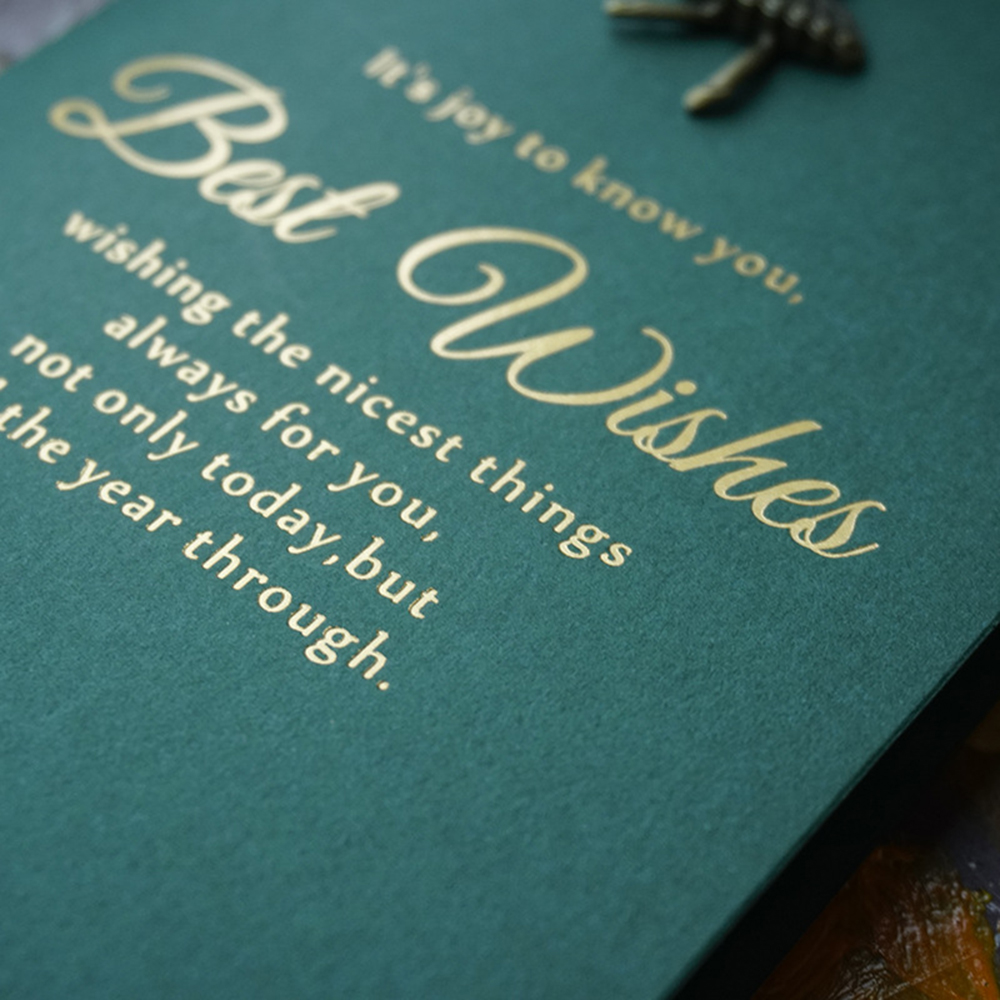 It's joy to know you,
Best Wishes
wishing the nicest things
always for you,
not only today,but
the year through.